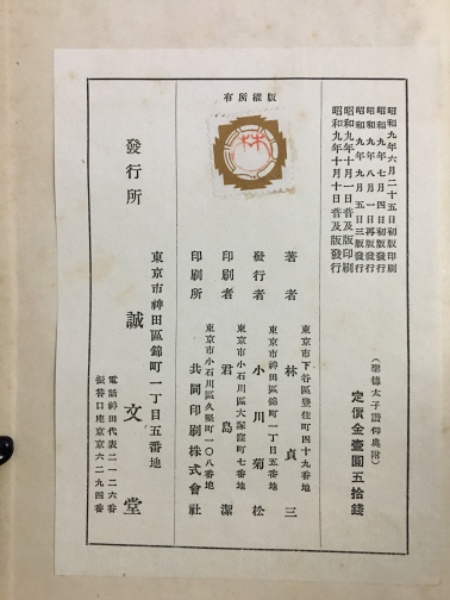 昭和九年六月二十五日初版印刷
昭和九年七月四日初版發行
昭和九年八月一日再版發行
昭和九年九月五日三版發行
昭和九年十月一日普及版印刷
昭和九年十月十日普及版發行
(聖德太子讃仰奥附)
定價金壹圓五拾錢
有所權版
林
東京市下谷區豊住町四十九番地
著者 林貞三
東京市神田區錦町一丁目五番地
發行者 小川菊松
東京市小石川區大塚窪町七番地
印刷者 君島潔
東京市小石川區久堅町一〇八番地
印刷所 共同印刷株式會社
東京市神田區錦町一丁目五番地
發行所 誠文堂
電話神田代表二一二六番
振替口座東京六二九四番